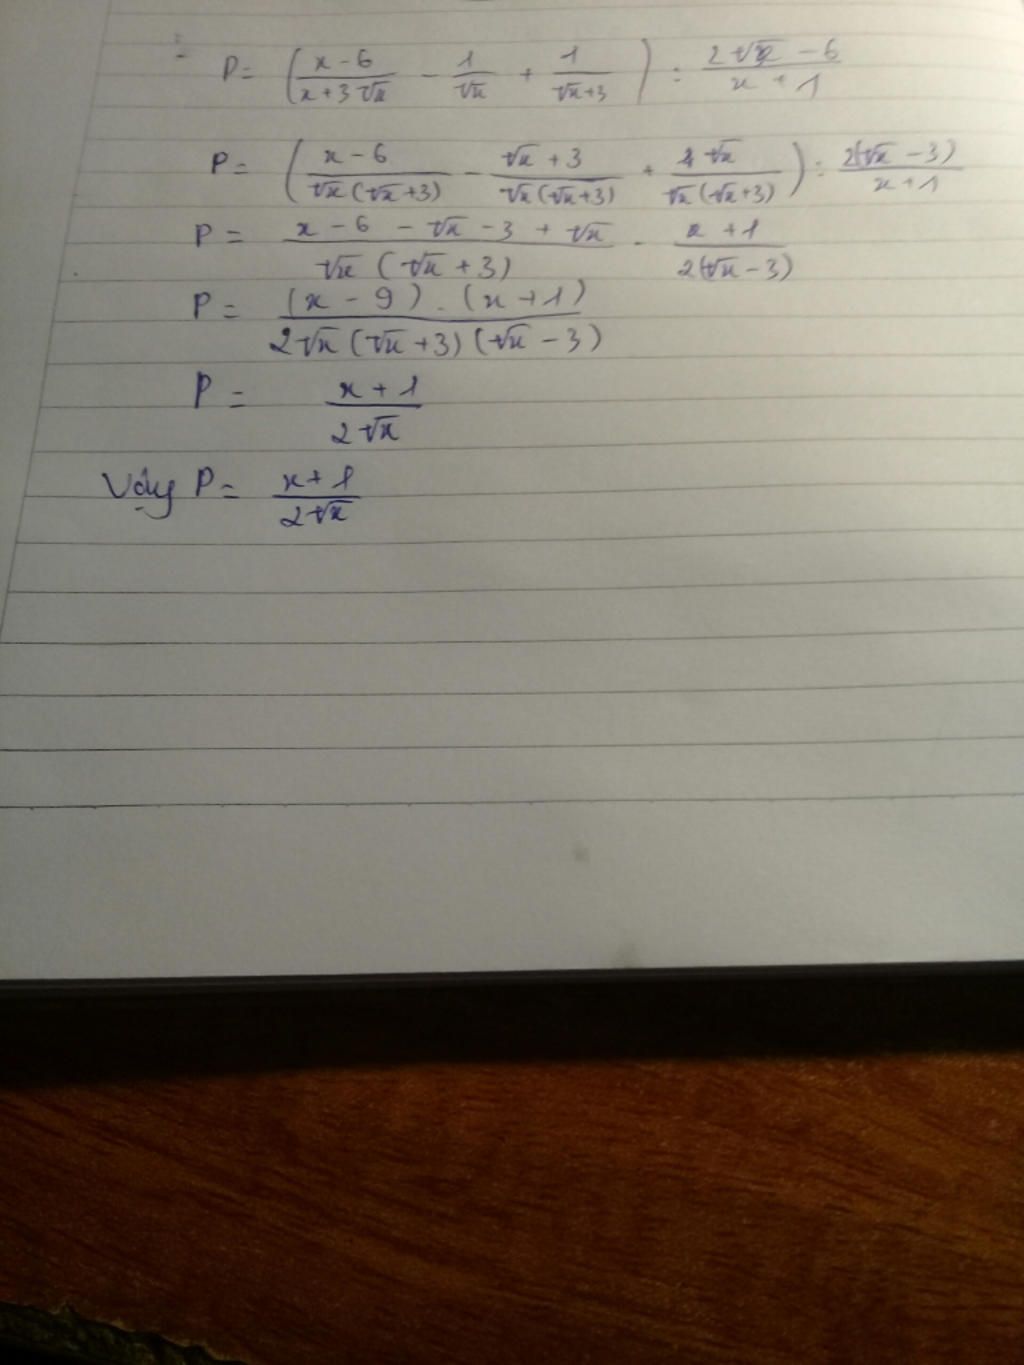 P = ( (x - 6)/(x + 3√x) - 1/√x + 1/(√x + 3) ) : (2√x - 6)/(x + 1)
P = ( (x - 6)/(√x(√x + 3)) - (√x + 3)/(√x(√x + 3)) + √x/(√x(√x + 3)) ) : 2(√x - 3)/(x + 1)
P = (x - 6 - √x - 3 + √x)/(√x(√x + 3)) . (x + 1)/(2(√x - 3))
P = (x - 9) . (x + 1)/(2√x(√x + 3)(√x - 3))
P = (x + 1)/(2√x)
Vậy P = (x + 1)/(2√x)